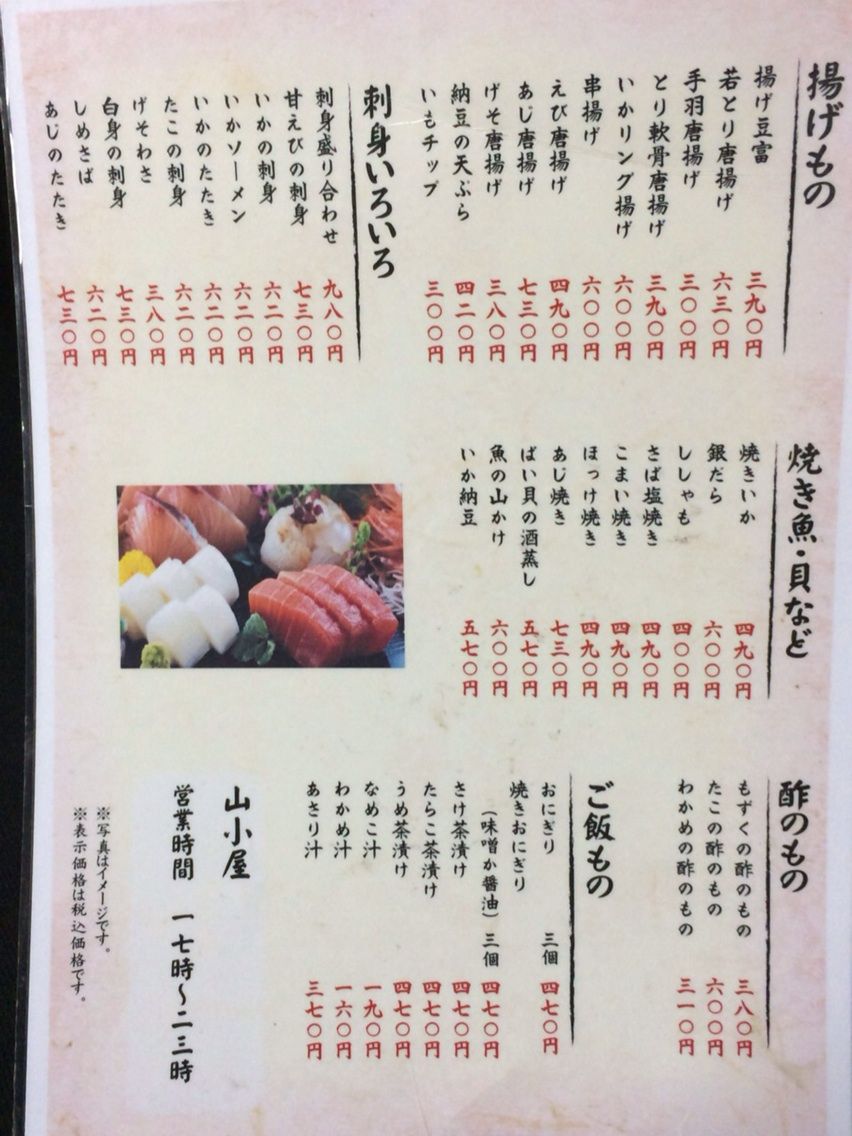 揚げもの
揚げ豆富 三九〇円
若とり唐揚げ 六三〇円
手羽唐揚げ 三〇〇円
とり軟骨唐揚げ 三九〇円
いかリング揚げ 六〇〇円
串揚げ 六〇〇円
えび唐揚げ 四九〇円
あじ唐揚げ 七三〇円
げそ唐揚げ 三八〇円
納豆の天ぷら 四二〇円
いもチップ 三〇〇円
刺身いろいろ
刺身盛り合わせ 九八〇円
甘えびの刺身 七三〇円
いかの刺身 六二〇円
いかソーメン 六二〇円
いかのたたき 六二〇円
たこの刺身 六二〇円
げそわさ 三八〇円
白身の刺身 七三〇円
しめさば 六二〇円
あじのたたき 七三〇円
焼き魚・貝など
焼きいか 四九〇円
銀だら 六〇〇円
ししゃも 四〇〇円
さば塩焼き 四九〇円
こまい焼き 四九〇円
ほっけ焼き 四九〇円
あじ焼き 七三〇円
ばい貝の酒蒸し 五七〇円
魚の山かけ 六〇〇円
いか納豆 五七〇円
酢のもの
もずくの酢のもの 三八〇円
たこの酢のもの 六〇〇円
わかめの酢のもの 三一〇円
ご飯もの
おにぎり 三個 四七〇円
焼きおにぎり
（味噌か醤油）三個 四七〇円
さけ茶漬け 四七〇円
たらこ茶漬け 四七〇円
うめ茶漬け 四七〇円
なめこ汁 一九〇円
わかめ汁 一六〇円
あさり汁 三七〇円
山小屋
営業時間 一七時〜二三時
※写真はイメージです。
※表示価格は税込価格です。